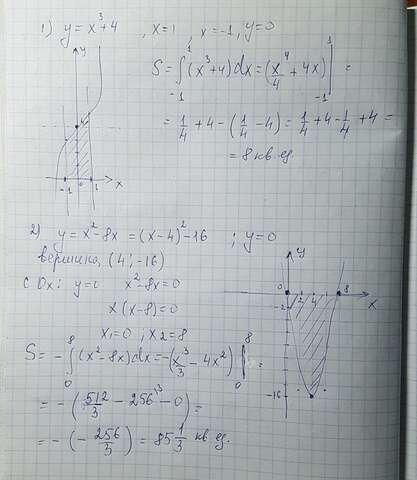 1) y = x³+4 , x=1 , x=-1, y=0
S = ∫₋₁¹ (x³+4) dx = (x⁴/4 + 4x) |₋₁¹ =
= 1/4 + 4 - (1/4 - 4) = 1/4 + 4 - 1/4 + 4 =
= 8 кв ед.
y
4
-1 0 1 x
2) y = x² - 8x = (x-4)² - 16 ; y=0
вершина (4; -16)
с Ox: y=0 x² - 8x = 0
x(x-8)=0
x₁=0 ; x₂=8
S = - ∫₀⁸ (x² - 8x) dx = -(x³/3 - 4x²) |₀⁸ =
= - (512/3 - 256\³ - 0) =
= - (- 256/3) = 85 1/3 кв ед.
y
0 2 4 8 x
-2
-16